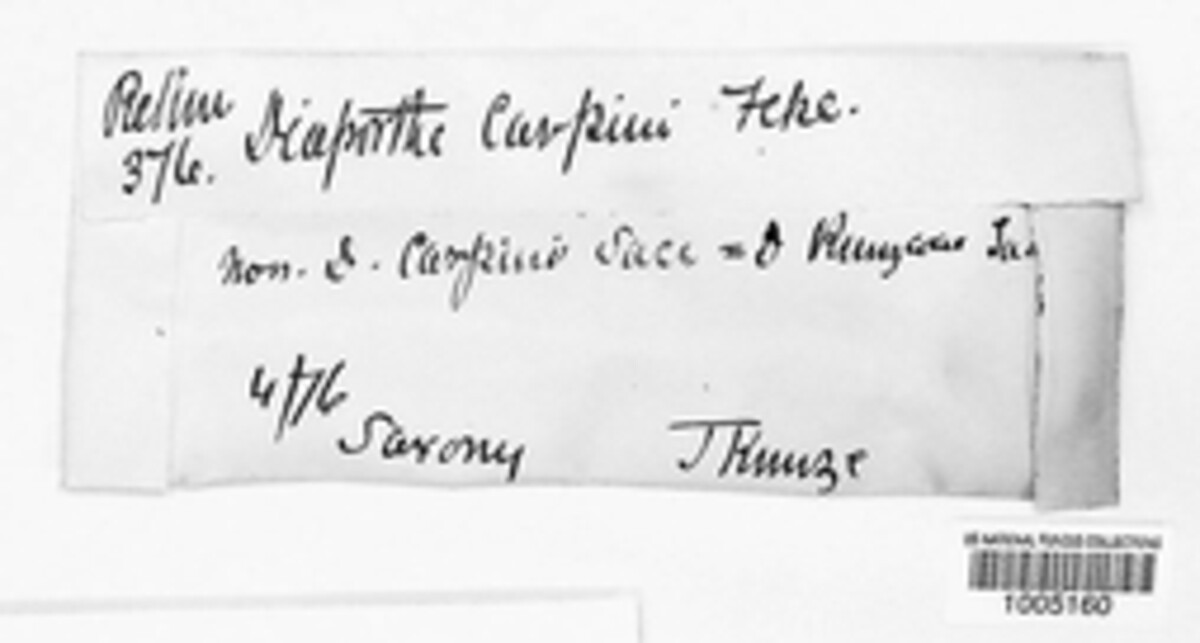 Rehm Diaporthe Carpini Fckl.
376.
non. D. Carpini Sacc = D Kunzeana Sa
4/76
Saxony J Kunze
US NATIONAL FUNGUS COLLECTIONS
1005160